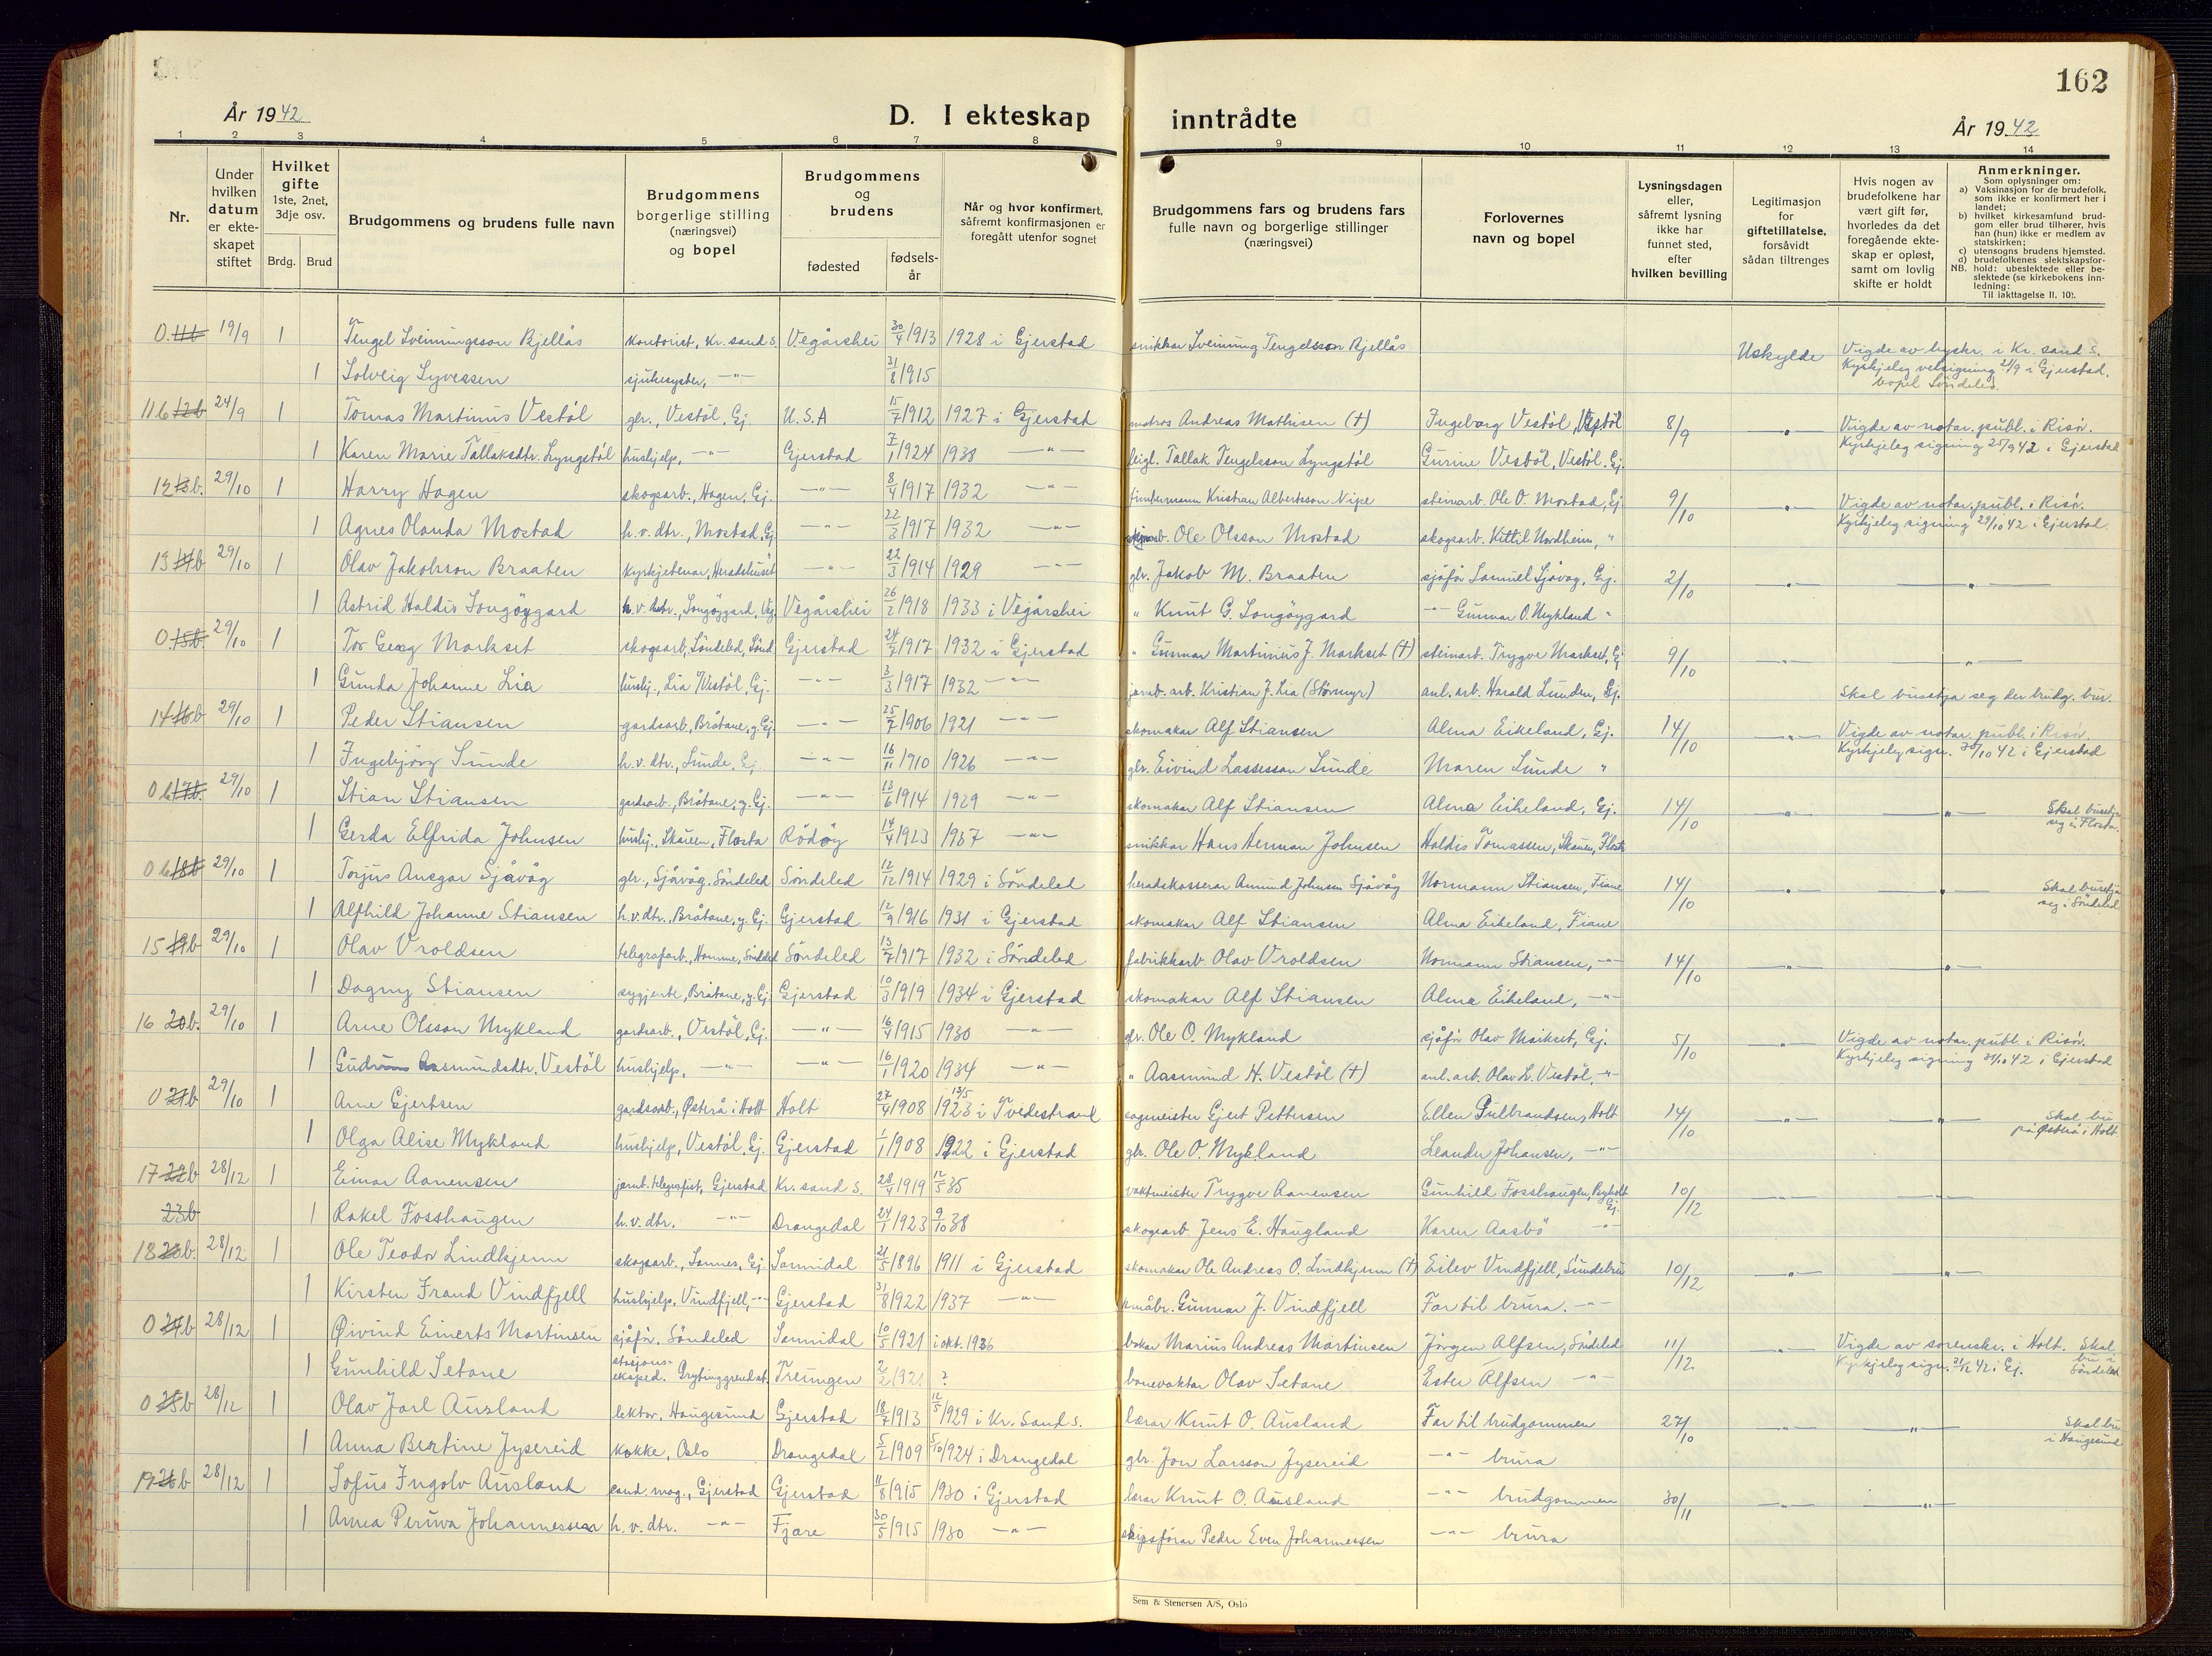 162
År 1942
D. I ekteskap inntrådte
År 1942
1 2 3 4 5 6 7 8 9 10 11 12 13 14
Nr.
Under hvilken datum er ekteskapet stiftet
Hvilket gifte 1ste, 2net, 3dje osv.
Brdg. Brud
Brudgommens og brudens fulle navn
Brudgommens borgerlige stilling (næringsvei) og bopel
Brudgommens og brudens
fødested
fødselsår
Når og hvor konfirmert, såfremt konfirmasjonen er foregått utenfor sognet
Brudgommens fars og brudens fars fulle navn og borgerlige stillinger (næringsvei)
Forlovernes navn og bopel
Lysningsdagen eller, såfremt lysning ikke har funnet sted, efter hvilken bevilling
Legitimasjon for giftetillatelse, forsåvidt sådan tiltrenges
Hvis nogen av brudefolkene har vært gift før, hvorledes da det foregående ekteskap er opløst, samt om lovlig skifte er holdt
Anmerkninger.
Som oplysninger om:
a) Vaksinasjon for de brudefolk, som ikke er konfirmert her i landet;
b) hvilket kirkesamfund brudgom eller brud tilhører, hvis han (hun) ikke er medlem av statskirken;
c) utensogns brudens hjemsted.
d) brudefolkenes slektskapsforhold: ubeslektede eller beslektede (se kirkebokens innledning:
NB.
Til iakttagelse II. 10).
0. 11b 19/9 1 Tengel Sveinungsson Bjellås kontorist, Kr. sand S. Vegårshei 30/4 1913 1928 i Gjerstad snikkar Sveinung Tengelsson Bjellås Uskylde Vigde av byskr. i Kr. sand S.
1 Solveig Syvessen sjukesyster, -"- 31/8 1915 Kyrkjeleg velsigning 21/9 i Gjerstad. bopel Söndeled.
11b 12b 24/9 1 Tomas Martinus Vestöl gbr., Vestöl, Gj. U.S.A 15/7 1912 1927 i Gjerstad matros Andreas Mathisen (†) Ingeborg Vestöl, Vestöl 8/9 -"- Vigde av notar. publ. i Risör.
1 Karen Marie Tallaksdtr. Lyngstöl hushjelp, -"- Gjerstad 7/1 1924 1938 -"- leigl. Tallak Tengelsson Lyngstöl Gurine Vestöl, Vestöl, Gj. Kyrkjeleg signing 25/9 42 i Gjerstad
12 13b. 29/10 1 Harry Hagen skogsarb., Hagen, Gj. -"- 8/4 1917 1932 -"- tömtermann Kristian Albertsson Nipe steinarb. Ole O. Mostad, Gj 9/10 -"- Vigde av notar. publ. i Risör.
1 Agnes Olanda Mostad h.v. dtr., Mostad, Gj. -"- 22/3 1917 1932 -"- Ole Olsson Mostad skogsarb. Kittil Nordheim, " Kyrkjeleg signing 29/10 42 i Gjerstad.
13 14b 29/10 1 Olav Jakobsson Braaten kyrkjetenar, Heradshuset -"- 22/3 1914 1929 -"- gbr. Jakob M. Braaten sjåför Samuel Sjåvåg, Gj. 2/10 -"- -"-
1 Astrid Haldis Songöygard h.v. dtr., Songöygard, Veg. Vegårshei 26/2 1918 1933 i Vegårshei " Knut G. Songöygard -"- Gunnar O. Mykland "
0. 15b. 29/10 1 Tor Georg Markset skogsarb., Söndeled, Sönd. Gjerstad 24/7 1917 1932 i Gjerstad " Gunnar Martinius J. Markset (†) steinarb. Trygve Markset, Gj 9/10 -"- -"-
1 Gunda Johanne Lia hushj., Lia, Vestöl, Gj. -"- 3/3 1917 1932 -"- jernb. arb. Kristian J. Lia (Stövmyr) anl. arb. Harald Lunden, Gj. Skal busetja seg der brudg. bur.
14 16b 29/10 1 Peder Stiansen gardsarb., Bråtane, y. Gj. -"- 25/7 1906 1921 -"- skomakar Alf Stiansen Alma Eikeland, Gj. 14/10 -"- Vigde av notar. publ. i Risör.
1 Ingebjörg Sunde h.v. dtr., Sunde, Gj. -"- 16/11 1910 1926 -"- gbr. Eivind Lassesson Sunde Maren Sunde " Kyrkjeleg sign. 30/10 42 i Gjerstad
0 b 17b. 29/10 1 Stian Stiansen gardsarb., Bråtane, y. Gj. -"- 13/6 1914 1929 -"- skomakar Alf Stiansen Alma Eikeland, Gj. 14/10 -"- -"- Skal busetja seg i Flosta.
1 Gerda Elfrida Johnsen hushj., Skåren, Flosta Rödöy 14/4 1923 1937 -"- snikkar Hans Herman Johnsen Haldis Tomassen, Skauen, Flosta
0 b 18b 29/10 1 Torjus Ansgar Sjåvåg gbr., Sjåvåg, Söndeled Söndeled 12/12 1914 1929 i Söndeled heradskasserar Amund Johnsen Sjåvåg Normann Stiansen, Fiane 14/10 -"- -"- Skal busetja seg i Söndeled
1 Alfhild Johanne Stiansen h.v. dtr., Bråtane, y. Gj. Gjerstad 12/9 1916 1931 i Gjerstad skomakar Alf Stiansen Alma Eikeland, Fiane
15 19b 29/10 1 Olav Vroldsen telegrafarb., Homme, Söndeled Söndeled 13/7 1917 1932 i Söndeled fabrikkarb. Olav Vroldsen Normann Stiansen, -"- 14/10 -"- -"-
1 Dagny Stiansen sygjente, Bråtane, y. Gj. Gjerstad 10/3 1919 1934 i Gjerstad skomakar Alf Stiansen Alma Eikeland, -"-
16 20b. 29/10 1 Arne Olsson Mykland gardsarb., Vestöl, Gj. -"- 16/4 1915 1930 -"- gbr. Ole O. Mykland sjåför Olav Markset, Gj. 5/10 Vigde av notar. publ. i Risör.
1 Gudrun Aasmundsdtr. Vestöl hushjelp, -"- -"- 16/1 1920 1934 -"- " Aasmund H. Vestöl (†) anl. arb. Olav L. Vestöl, -"- Kyrkjeleg signing 31/10 42 i Gjerstad
0 21b 29/10 1 Arne Gjertsen gardsarb., Österå i Holt Holt 27/4 1908 13/5 1923 i Tvedestrand sagmeister Gjert Pettersen Ellen Gulbrandsen, Holt 14/10 -"- -"- Skal bu på Österå i Holt
1 Olga Alise Mykland hushjelp, Vestöl, Gj. Gjerstad 1/1 1908 1922 i Gjerstad gbr. Ole O. Mykland Leander Johansen, -"-
17 22b 28/12 1 Einar Aanensen jernb. telegrafist, Gjerstad Kr. sand S. 28/4 1919 12/5 35 vaktmeister Trygve Aanensen Gunhild Fosshaugen, Gj. 10/12 -"- -"-
23b 1 Rakel Fosshaugen h.v. dtr. -"- Drangedal 24/1 1923 9/10 38 skogsarb. Jens E. Haugland Karen Aasbö -"-
18 23b. 28/12 1 Ole Teodor Lindkjenn skogsarb., Sannes, Gj. Sannidal 21/5 1896 1911 i Gjerstad skomakar Ole Andreas O. Lindkjenn (†) Eilev Vindfjell, Sundebru 10/12 -"- -"-
1 Kirsten Fraud Vindfjell hushjelp, Vindfjell, -"- Gjerstad 31/8 1922 1937 -"- småbr. Gunnar J. Vindfjell Far til brura. -"-
0 24b 28/12 1 Øivind Einerts Martinsen sjåför. Söndeled Sannidal 10/5 1921 i okt. 1936 bakar Marius Andreas Martinsen Jörgen Alfsen, Söndeled 11/12. -"- Vigde av sorenskr. i Holt. Skal bu i Söndeled
1 Gunhild Setane stasjonseksped. Grytinggrend st. Treungen 2/2 1921 ? banevaktar Olav Setane Ester Alfsen -"- Kyrkjeleg sign. 31/12 42 i Gj.
0 25b 28/12 1 Olav Jarl Ausland lektor, Haugesund Gjerstad 18/7 1913 12/5 1929 i Kr. Sand S. lærar Knut O. Ausland Far til brudgommen 27/10 -"- -"- Skal bu i Haugesund
1 Anna Bertine Jysereid kokke, Oslo Drangedal 5/2 1909 5/10 1924 i Drangedal gbr. Jon Larsson Jysereid -"- brura
19 26b 28/12 1 Sofus Ingolv Ausland cand. mag., Gjerstad Gjerstad 11/8 1915 1930 i Gjerstad lærar Knut O. Ausland -"- brudgommen 30/11 -"- -"-
1 Anna Peruva Johannessen h.v. dtr. -"- Fjære 30/5 1915 1930 -"- skipsförar Peder Even Johannessen -"- brura
Sem & Stenersen A/S, Oslo